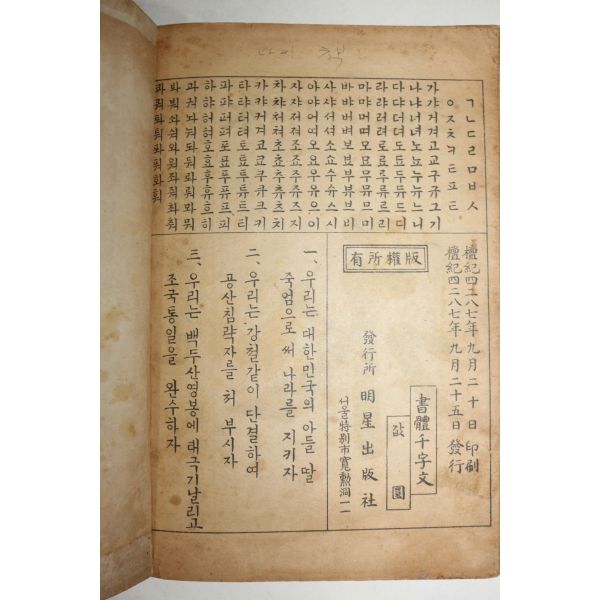 ㄱㄴㄷㄹㅁㅂㅅ
ㅇㅈㅊㅋㅌㅍ
가갸거겨고교구규그기
나냐너녀노뇨누뉴느니
다댜더뎌도됴두듀드디
라랴러려로료루류르리
마먀머며모묘무뮤므미
바뱌버벼보뵤부뷰브비
사샤서셔소쇼수슈스시
아야어여오요우유으이
자쟈저져조죠주쥬즈지
차챠처쳐초쵸추츄츠치
카캬커켜코쿄쿠큐크키
타탸터텨토툐투튜트티
파퍄퍼펴포표푸퓨프피
하햐허혀호효후휴흐히
과궈놔눠돠둬롸뤄뫄뭐
봐붜솨숴와워좌줘촤춰
콰쿼톼퉈퐈풔화훠
檀紀四二八七年 九月 二十 日 印刷
檀紀四二八七年 九月 二十五日 發行
書體千字文
값 圓
版權所有
發行所 明星出版社
서울特別市寬勳洞一一
一、우리는 대한민국의 아들 딸
죽엄으로 써 나라를 지키자
二、우리는 강철같이 단결하여
공산침략자를 처 부시자
三、우리는 백두산영봉에 태극기날리고
조국통일을 완수하자